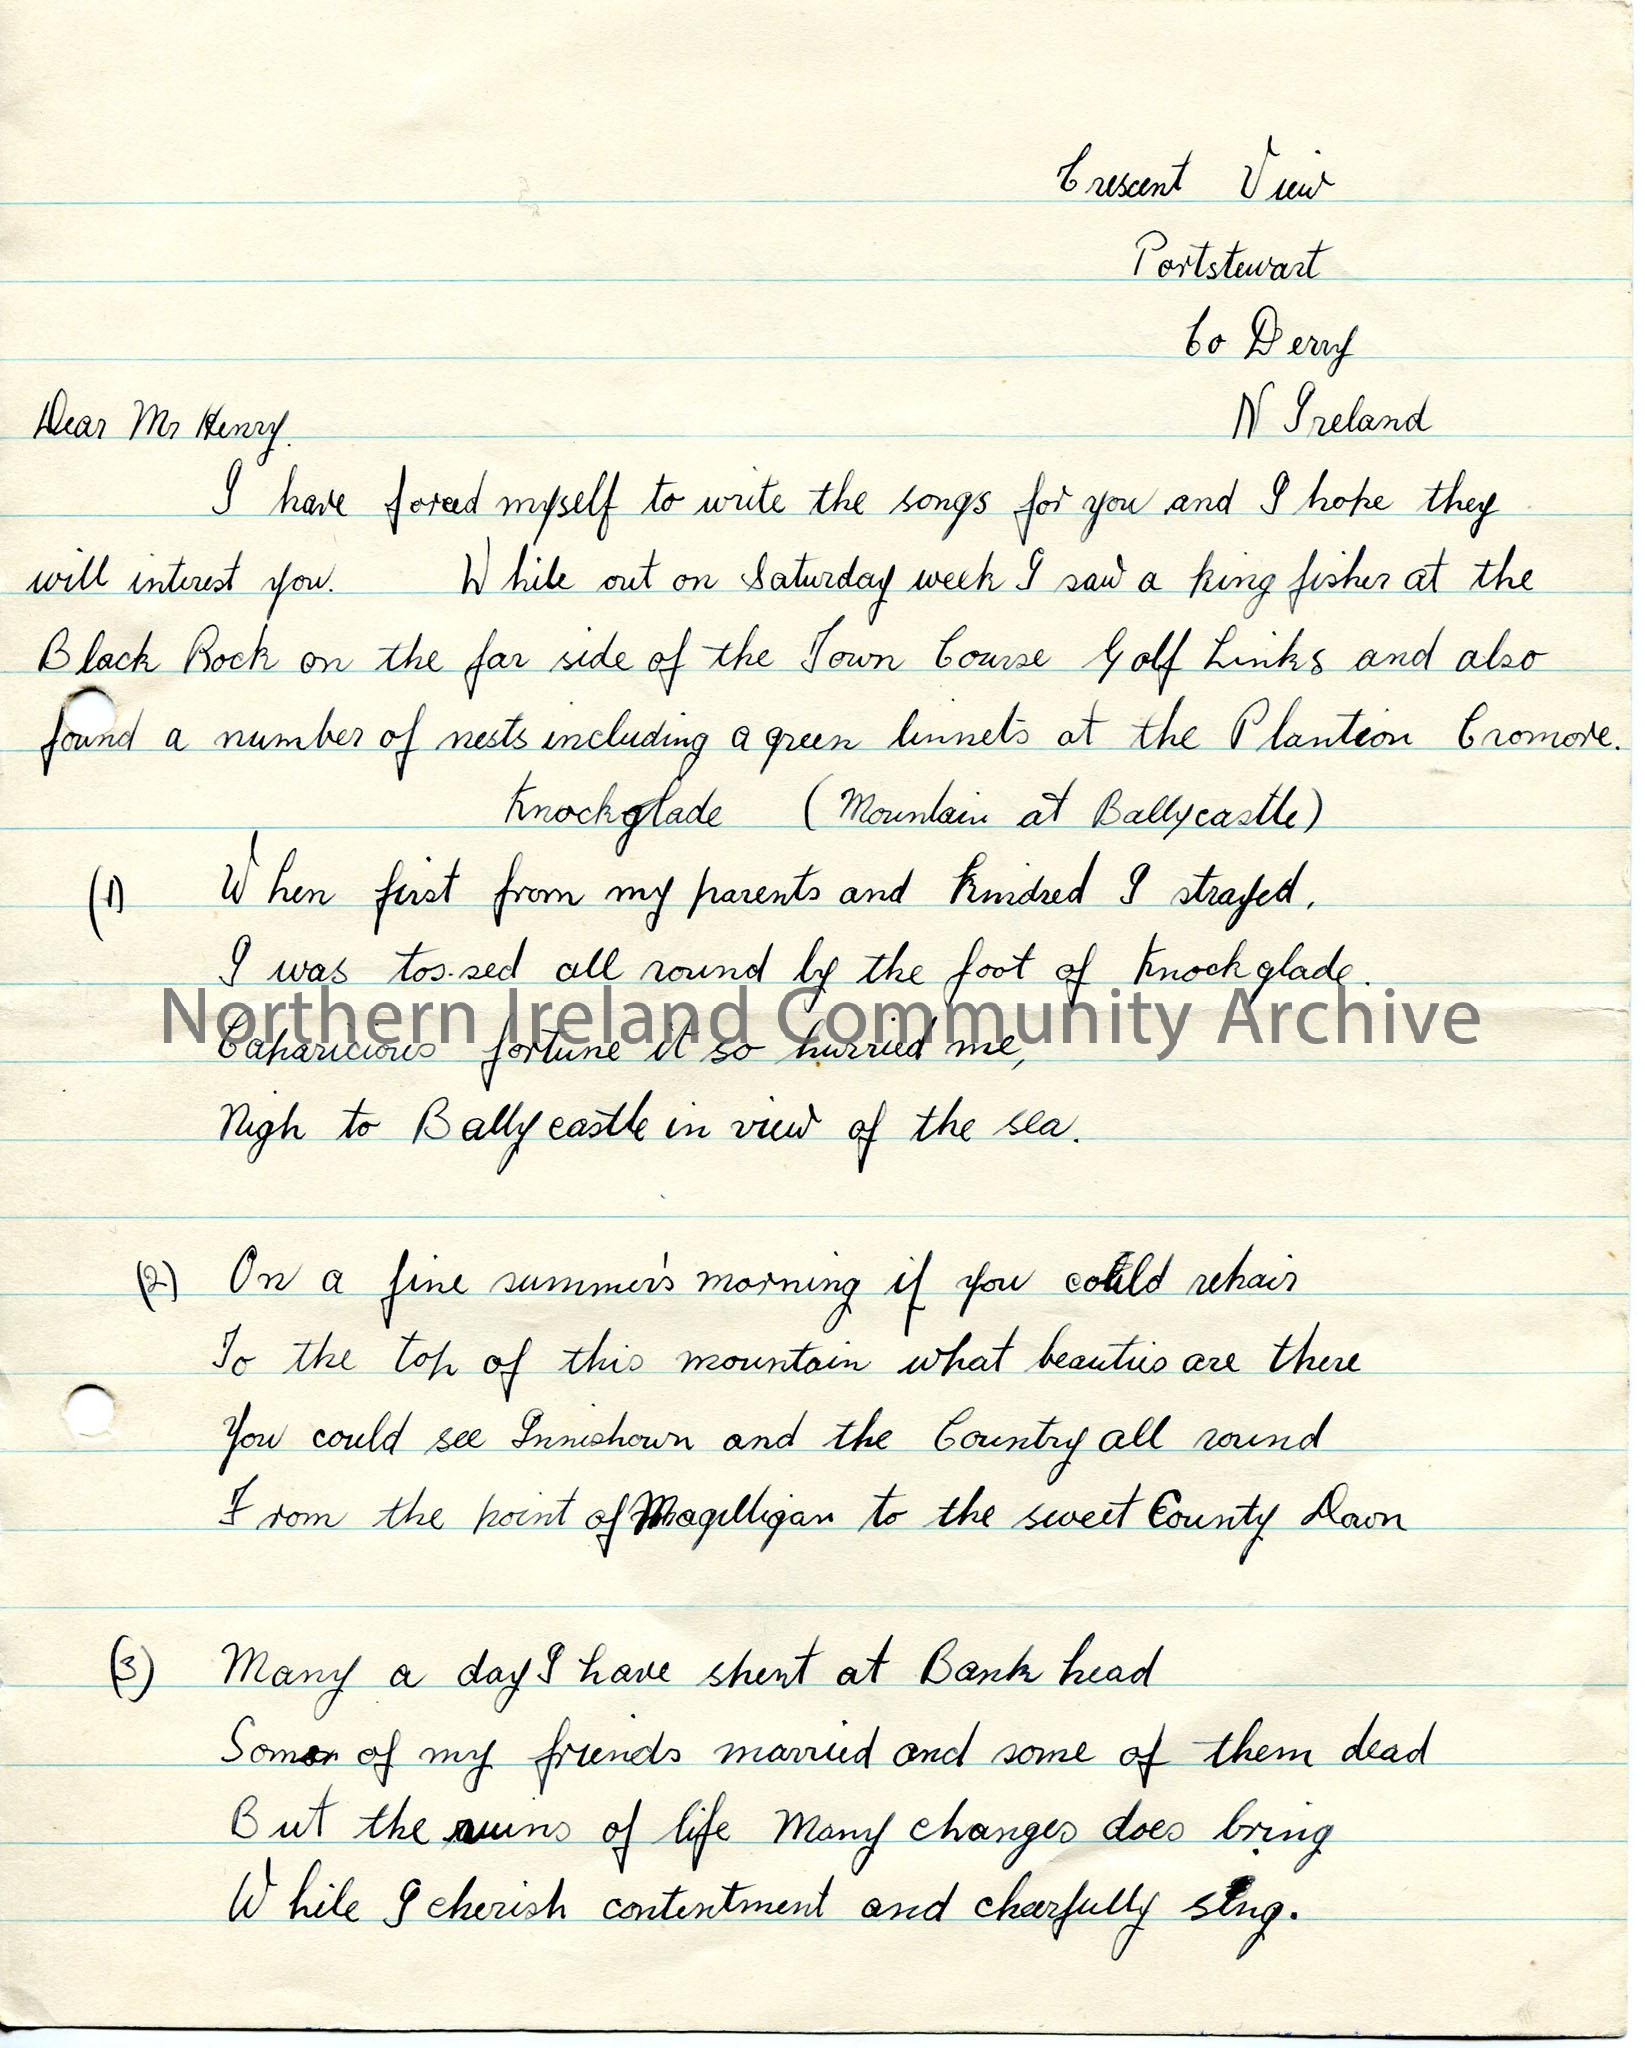 Crescent View
Portstewart
Co Derry
N Ireland
Dear Mr Henry.
I have forced myself to write the songs for you and I hope they
will interest you. While out on Saturday week I saw a king fisher at the
Black Rock on the far side of the Town Course Golf Links and also
found a number of nests including a green linnets at the Plantion Cromore.
Knockglade (Mountain at Ballycastle)
(1) When first from my parents and kindred I strayed,
I was tos.sed all round by the foot of Knockglade.
Northern Ireland Community Archive
Caparicious fortune it so hurried me,
Nigh to Ballycastle in view of the sea.
(2) On a fine summer's morning if you could repair
To the top of this mountain what beauties are there
You could see Innishown and the Country all round
From the point of Magilligan to the sweet County Down
(3) Many a day I have spent at Bank head
Some of my friends married and some of them dead
But the ruins of life Many changes does bring
While I cherish contentment and cheerfully sing.